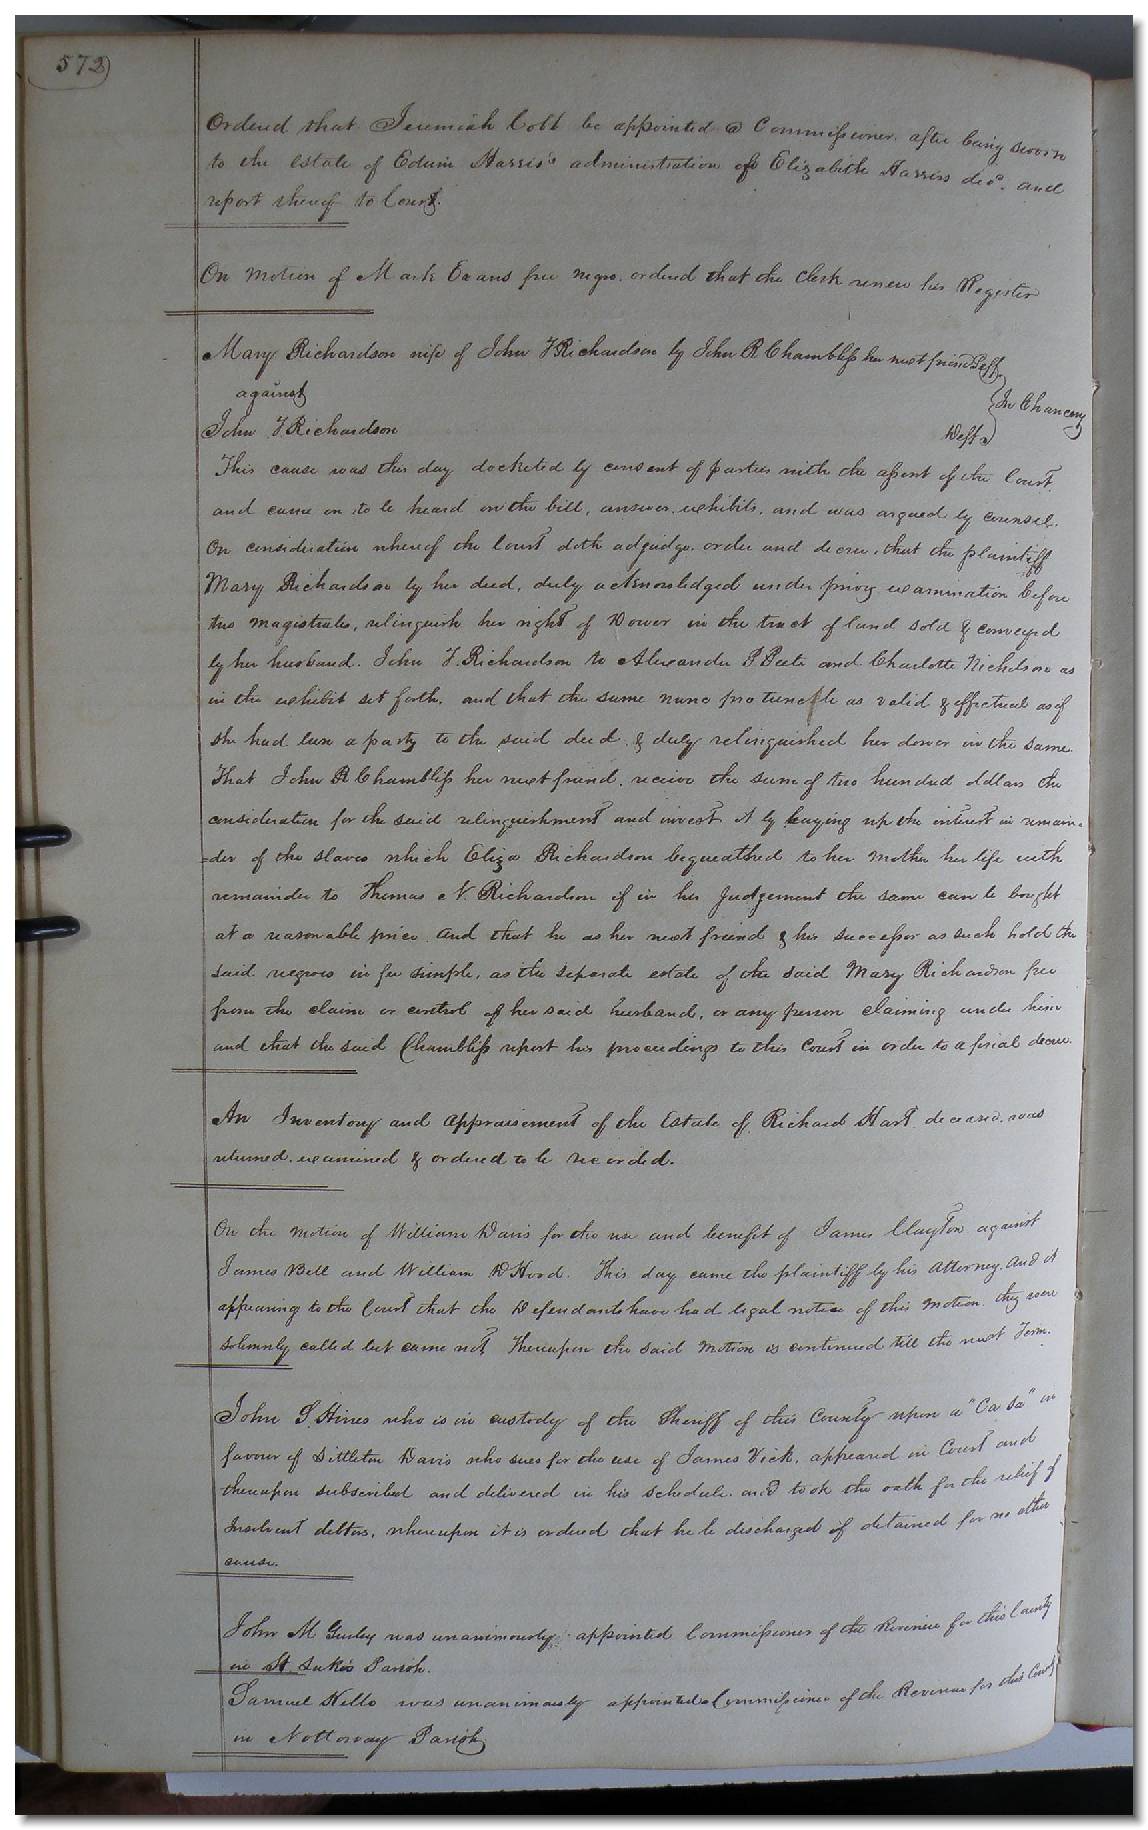 572
Ordered that Jeremiah Cobb be appointed a Commissioner after being sworn
to the estate of Edwin Harris's administration of Elizabeth Harriss decd. and
report thereof to Court.
On motion of Mark Evans free negro. ordered that the Clerk renew his Register
Mary Richardson wife of John F Richardson by John R Chambliss her next friend Plff
against
In Chancery
John F Richardson
Deft
This cause was this day docketed by consent of parties with the assent of the Court
and came on to be heard on the bill, answer, exhibits, and was argued by counsel.
On consideration whereof the Court doth adjudge. order and decree, that the plaintiff
Mary Richardson by her deed, duly acknowledged under privy examination before
two magistrates, relinquish her right of Dower in the tract of land sold & conveyed
by her husband. John F. Richardson to Alexander P. Peete and Charlotte Nicholson as
in the exhibit set forth. and that the same nunc pro tunc be as valid & effectual as if
she had been a party to the said deed & duly relinquished her dower in the same.
That John R Chambliss her next friend, receive the sum of two hundred dollars the
consideration for the said relinquishment and invest it by buying up the interest in remain-
=der of the slaves which Eliza Richardson bequeathed to her mother her life with
remainder to Thomas N. Richardson if in his Judgement the same can be bought
at a reasonable price. And that he as her next friend & his successor as such hold the
said negroes in fee simple, as the separate estate of the said Mary Richardson free
from the claim or control of her said husband, or any person claiming under him
and that the said Chambliss report his proceedings to this Court in order to a final decree.
An Inventory and appraisement of the Estate of Richard Hart deceased. was
returned. examined & ordered to be recorded.
On the motion of William Davis for the use and benefit of James Clayton against
James Bell and William D Hood. This day came the plaintiff by his Attorney. And it
appearing to the Court that the Defendants have had legal notice of this motion. they were
solemnly called but came not, Thereupon the said motion is continued till the next Term.
John S. Hines who is in custody of the Sheriff of this County upon a "Ca Sa" in
favour of Littleton Davis who sues for the use of James Vick. appeared in Court and
thereupon subscribed and delivered in his schedule. and took the oath for the relief of
Insolvent debtors, whereupon it is ordered that he be discharged if detained for no other
cause.
John M Gurley was unanimously appointed Commissioner of the Revenue for this County
in St Luke's Parish.
Samuel Kello was unanimously appointed Commissioner of the Revenue for this County
in Nottoway Parish